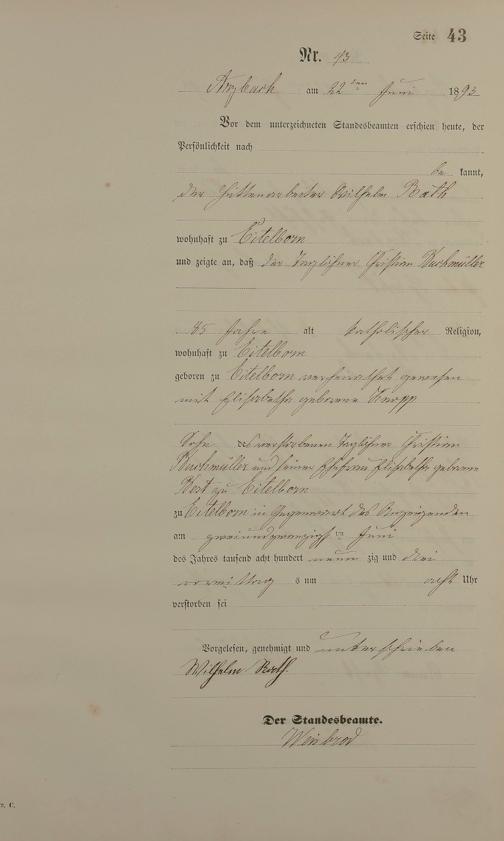 Seite 43
Nr. 43
Arzbach am 22 ten Juni 1893
Vor dem unterzeichneten Standesbeamten erschien heute, der
Persönlichkeit nach
be kannt,
der Hüttenarbeiter Wilhelm Rath
wohnhaft zu Eitelborn
und zeigte an, daß der Taglöhner Christian Buchmüller
35 Jahre alt katholischer Religion,
wohnhaft zu Eitelborn
geboren zu Eitelborn verheirathet gewesen
mit Elisabetha geborene Knopp
Sohn des verstorbenen Taglöhner Christian
Buchmüller und seiner Ehefrau Elisabetha geborene
zu Eitelborn
zu Eitelborn in Gegenwart des Anzeigenden
am zweiundzwanzigsten Juni
des Jahres tausend acht hundert neun zig und drei
vormittag s um acht Uhr
verstorben sei
Vorgelesen, genehmigt und unterschrieben
Wilhelm Rath.
Der Standesbeamte.
Weinbrod
C.